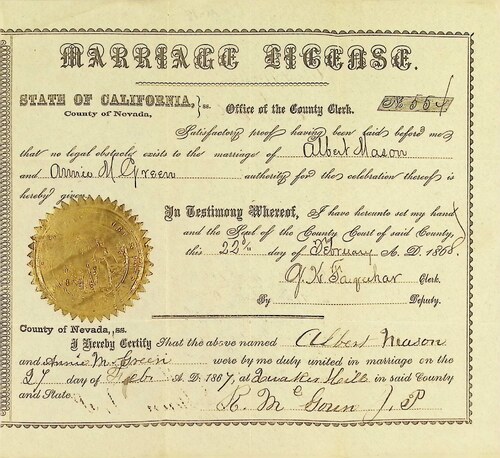 MARRIAGE LICENSE.
STATE OF CALIFORNIA, } ss. Office of the County Clerk. No. 554
County of Nevada,
Satisfactory proof having been laid before me
that no legal obstacle exists to the marriage of Albert Mason
and Annie M Green authority for the celebration thereof is
hereby given.
In Testimony Whereof, I have hereunto set my hand
and the Seal of the County Court of said County,
this 22d day of February A. D. 1868.
Farquhar Clerk.
By Deputy.
County of Nevada, ss.
I Hereby Certify That the above named Albert Mason
and Annie M. Green were by me duly united in marriage on the
27 day of Feb. A. D. 1867, at Quaker Hill in said County
and State.
J. P